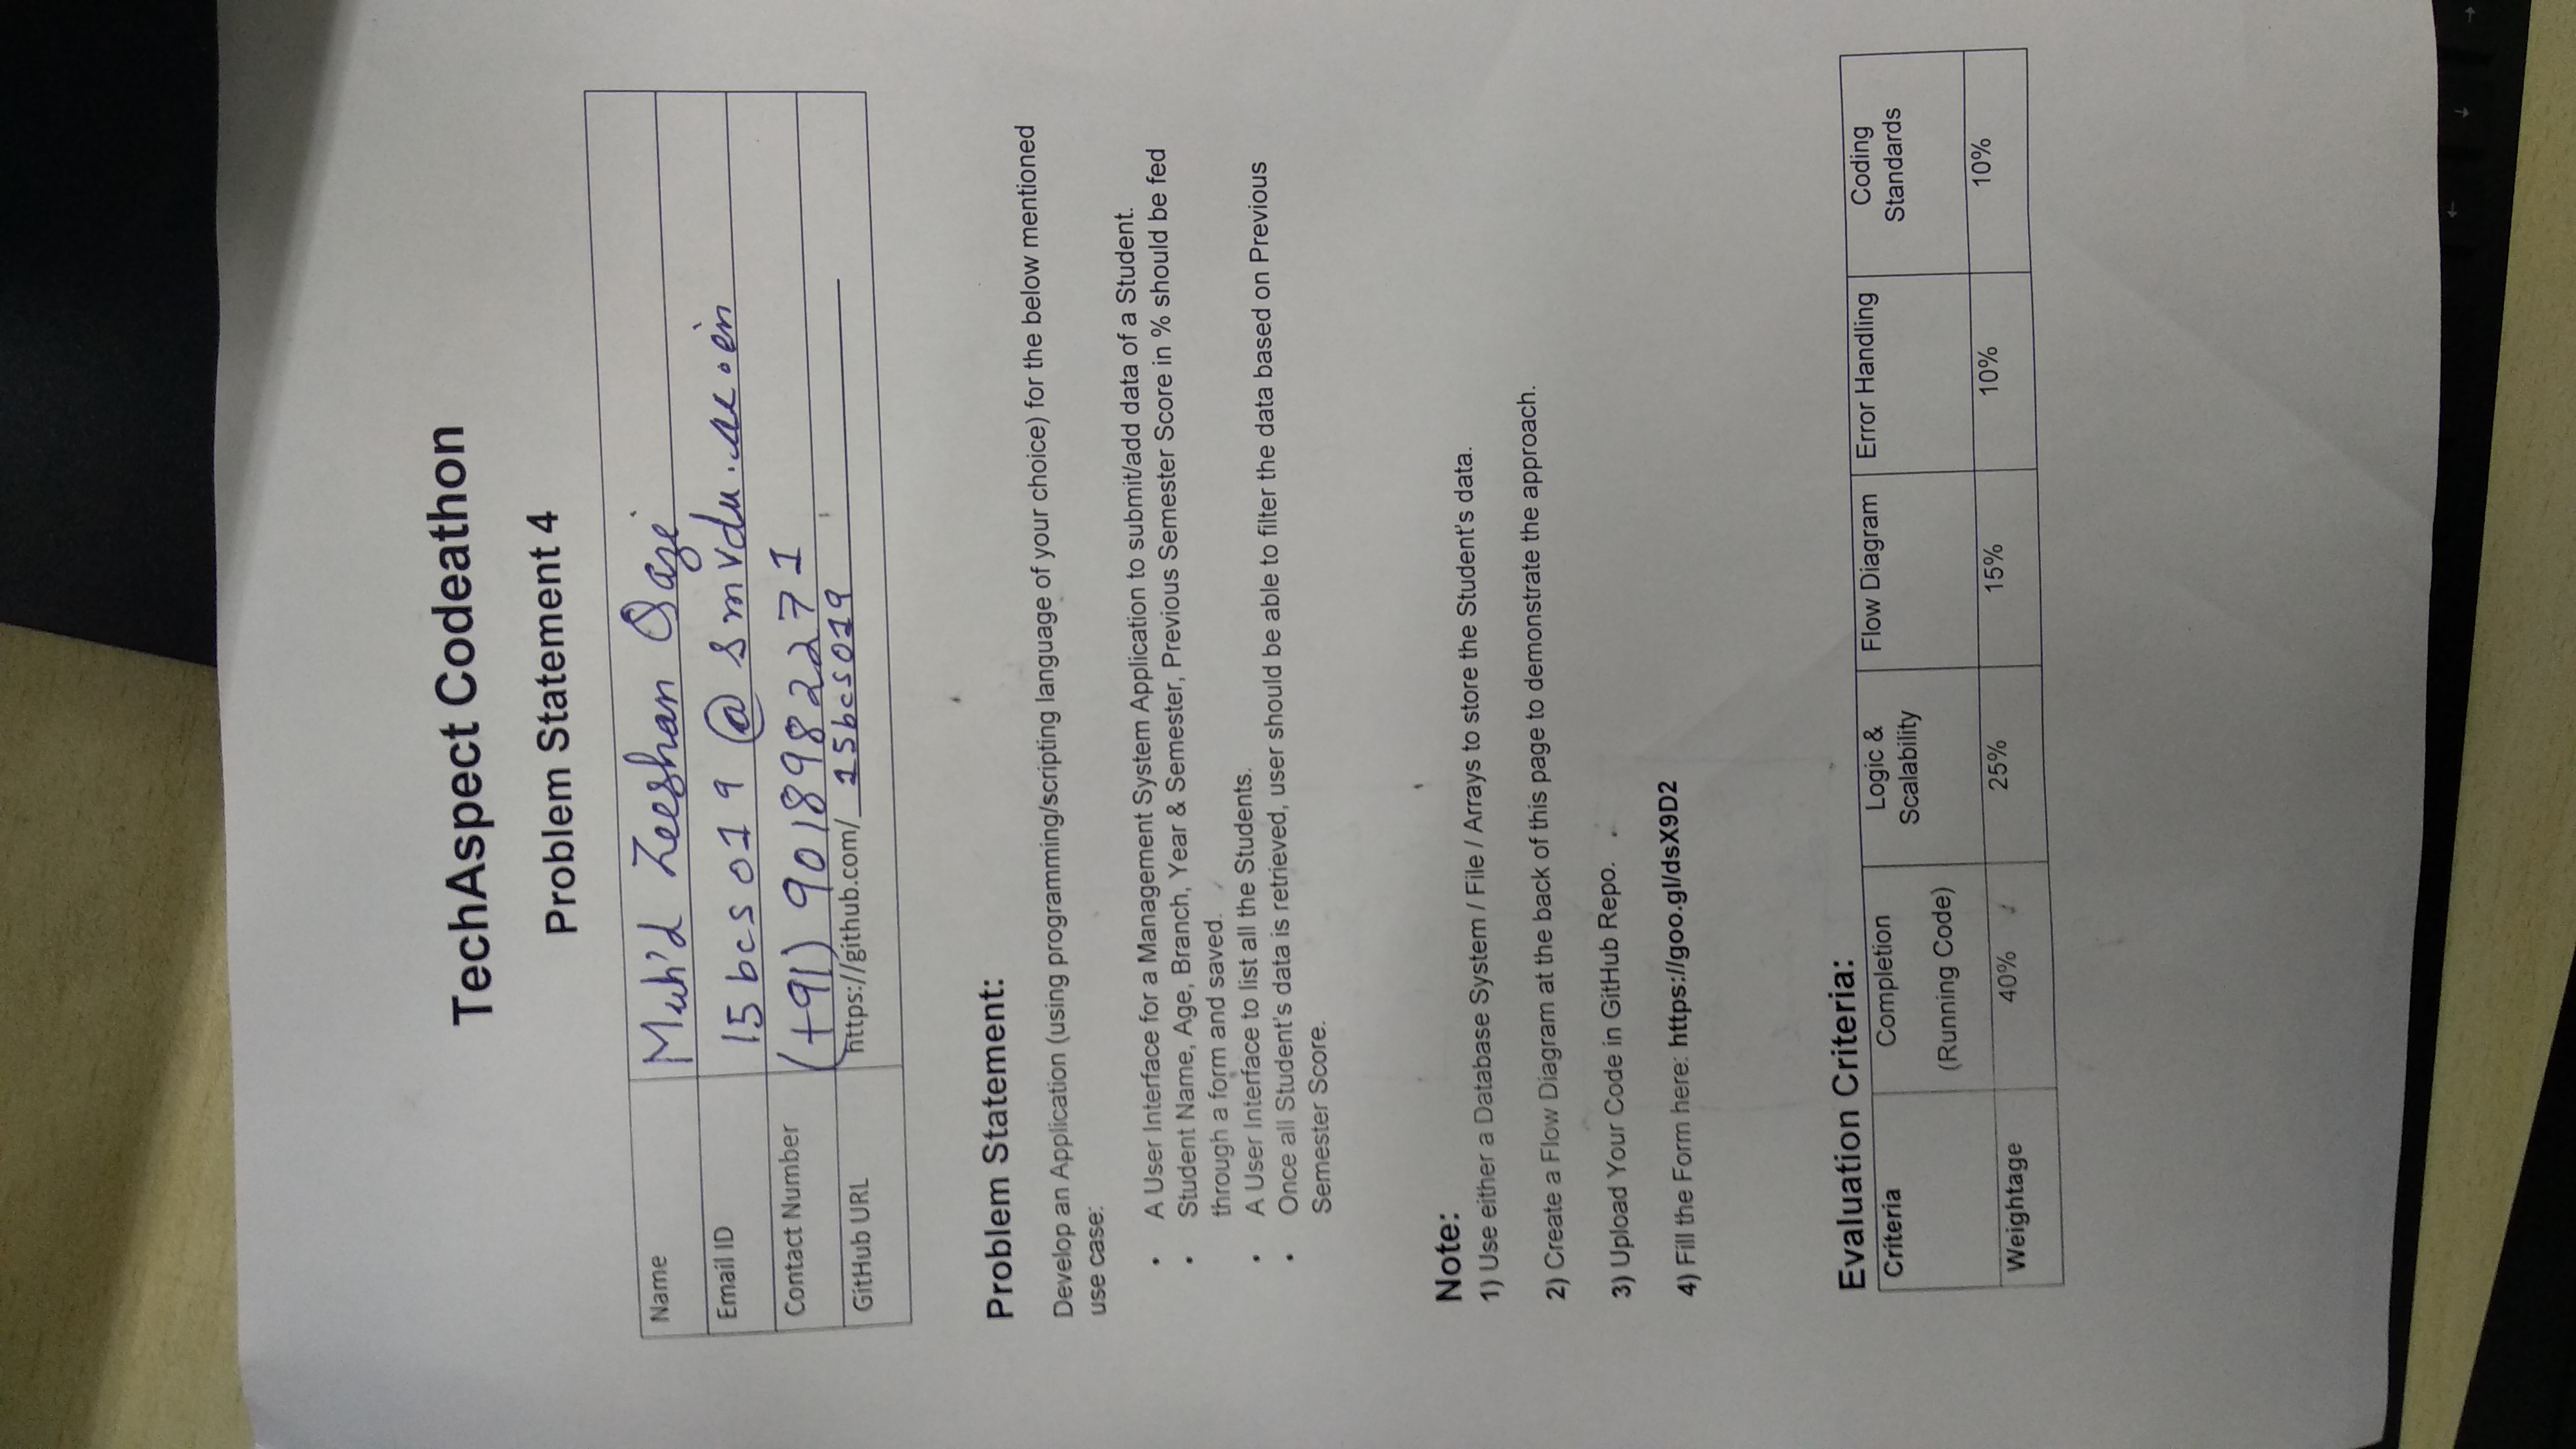 TechAspect Codeathon
Problem Statement 4
Name Muh'd Zeeshan Qazi
Email ID 15bcs019@smvdu.ac.in
Contact Number (+91) 9018982271
GitHub URL https://github.com/ 15bcs019
Problem Statement:
Develop an Application (using programming/scripting language of your choice) for the below mentioned
use case:
• A User Interface for a Management System Application to submit/add data of a Student.
• Student Name, Age, Branch, Year & Semester, Previous Semester Score in % should be fed
through a form and saved.
• A User Interface to list all the Students.
• Once all Student's data is retrieved, user should be able to filter the data based on Previous
Semester Score.
Note:
1) Use either a Database System / File / Arrays to store the Student's data.
2) Create a Flow Diagram at the back of this page to demonstrate the approach.
3) Upload Your Code in GitHub Repo.
4) Fill the Form here: https://goo.gl/dsX9D2
Evaluation Criteria:
Criteria Completion Logic & Flow Diagram Error Handling Coding
(Running Code) Scalability Standards
Weightage 40% 25% 15% 10% 10%